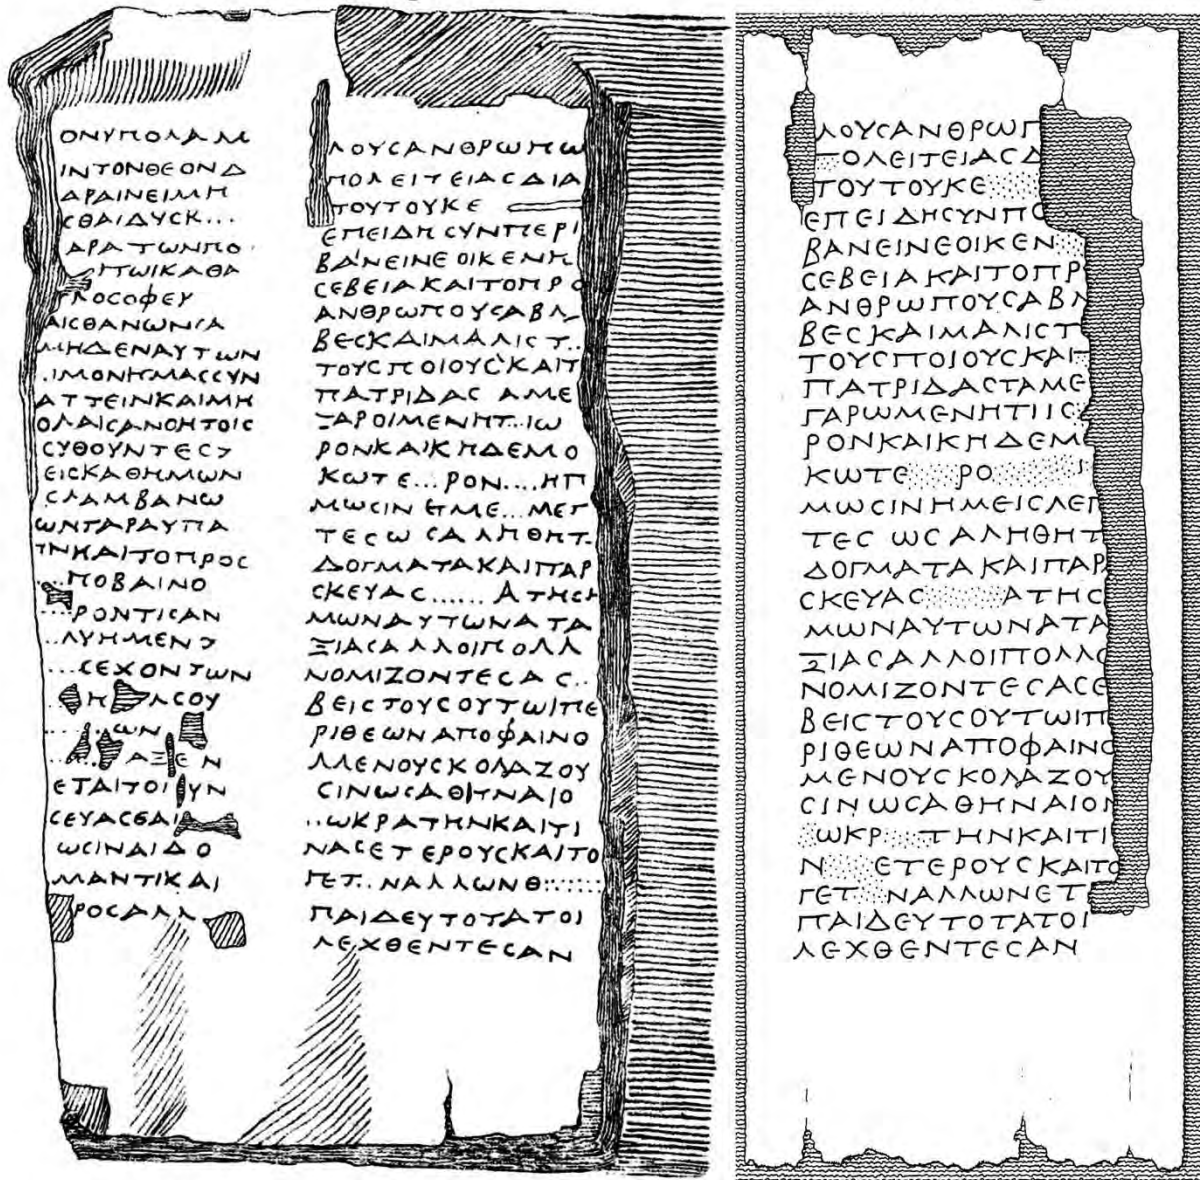 ΟΝΥΠΟΛΑΜ
ΙΝΤΟΝΘΕΟΝΔ
ΑΡΑΙΝΕΙΜΗ
ϹΘΑΙΔΥϹΚ...
ΑΡΑΤΩΝΠΟ
ΗΤΩΙΚΑΘΑ
ΛΟϹΟΦΕΥ
ΑΙϹΘΑΝΩΝΙΑ
ΜΗΔΕΝΑΥΤΩΝ
.ΙΜΟΝΗΜΑϹϹΥΝ
ΑΤΤΕΙΝΚΑΙΜΗ
ΟΛΑΙϹΑΝΟΗΤΟΙϹ
ϹΥΘΟΥΝΤΕϹ>
ΕΙϹΚΑΘΗΜΩΝ
ϹΛΑΜΒΑΝΩ
ΩΝΓΑΡΑΥΠΑ
ΙΝΚΑΙΤΟΠΡΟϹ
...ΠΟΒΑΙΝΟ
...ΡΟΝΤΙϹΑΝ
..ΛΥΗΜΕΝ>
...ϹΕΧΟΝΤΩΝ
Η ΛϹΟΥ
ΩΝ
ΑΞΕΝ
ΕΤΑΙΤΟΙ ΥΝ
ϹΕΥΑϹΘΑΙ
ΩϹΙΝΑΙΔΟ
ΜΑΝΤΙΚΑΙ
ΡΟϹΑΛΛ
ΛΟΥϹΑΝΘΡΩΠΩ
ΠΟΛΕΙΤΕΙΑϹΔΙΑ
ΤΟΥΤΟΥΚΕ
ΕΠΕΙΔΗϹΥΝΠΕΡΙ
ΒΑΝΕΙΝΕΟΙΚΕΝΗ
ϹΕΒΕΙΑΚΑΙΤΟΠΡΟ
ΑΝΘΡΩΠΟΥϹΑΒΛ
ΒΕϹΚΑΙΜΑΛΙϹΤ..
ΤΟΥϹΠΟΙΟΥϹΚΑΙΤ
ΠΑΤΡΙΔΑϹ ΑΜΕ
ΞΑΡΟΙΜΕΝΗΤ..ΙΩ
ΡΟΝΚΑΙΚΗΔΕΜΟ
ΚΩΤΕ...ΡΟΝ....ΗΠ
ΜΩϹΙΝΗΜΕ...ΜΕΓ
ΤΕϹΩϹΑΛΗΘΗΤ.
ΔΟΓΜΑΤΑΚΑΙΠΑΡ
ϹΚΕΥΑϹ......ΑΤΗϹΗ
ΜΩΝΑΥΤΩΝΑΤΑ
ΞΙΑϹΑΛΛΟΙΠΟΛΛ
ΝΟΜΙΖΟΝΤΕϹΑϹ..
ΒΕΙϹΤΟΥϹΟΥΤΩΙΠΕ
ΡΙΘΕΩΝΑΠΟΦΑΙΝΟ
ΛΜΕΝΟΥϹΚΟΛΑΖΟΥ
ϹΙΝΩϹΑΘΙΤΝΑΙΟ
..ΩΚΡΑΤΗΝΚΑΙΤΙ
ΝΑϹΕΤΕΡΟΥϹΚΑΙΤΟ
ΓΕΤ..ΝΑΛΛΩΝΘ
ΠΑΙΔΕΥΤΟΤΑΤΟΙ
ΛΕΧΘΕΝΤΕϹΑΝ
ΛΟΥϹΑΝΘΡΩΠ
ΠΟΛΕΙΤΕΙΑϹΔ
ΤΟΥΤΟΥΚΕ
ΕΠΕΙΔΗϹΥΝΠΟ
ΒΑΝΕΙΝΕΟΙΚΕΝ
ϹΕΒΕΙΑΚΑΙΤΟΠΡ
ΑΝΘΡΩΠΟΥϹΑΒΛ
ΒΕϹΚΑΙΜΑΛΙϹΤ
ΤΟΥϹΠΟΙΟΥϹΚΑΙΤ
ΠΑΤΡΙΔΑϹΤΑΜΕ
ΓΑΡΩΜΕΝΗΤΙΙϹ
ΡΟΝΚΑΙΚΗΔΕΜ
ΚΩΤΕ ΡΟ Ι
ΜΩϹΙΝΗΜΕΙϹΛΕΓ
ΤΕϹ ΩϹΑΛΗΘΗΤ
ΔΟΓΜΑΤΑΚΑΙΠΑΡ
ϹΚΕΥΑϹ ΑΤΗϹ
ΜΩΝΑΥΤΩΝΑΤΑ
ΞΙΑϹΑΛΛΟΙΠΟΛΛΟ
ΝΟΜΙΖΟΝΤΕϹΑϹΕ
ΒΕΙϹΤΟΥϹΟΥΤΩΙΠ
ΡΙΘΕΩΝΑΠΟΦΑΙΝΟ
ΜΕΝΟΥϹΚΟΛΑΖΟΥ
ϹΙΝΩϹΑΘΗΝΑΙΟΙ
ΩΚΡ ΤΗΝΚΑΙΤΙ
Ν ΕΤΕΡΟΥϹΚΑΙΤΟ
ΓΕΤ ΝΑΛΛΩΝΕΤ
ΠΑΙΔΕΥΤΟΤΑΤΟΙ
ΛΕΧΘΕΝΤΕϹΑΝ